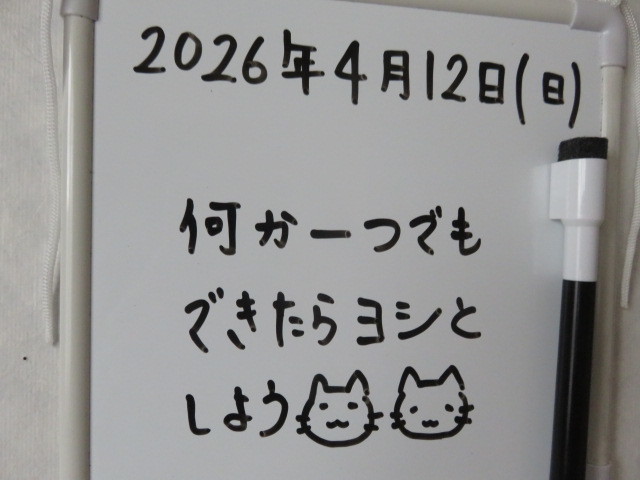 2026年4月12日(日)
何か一つでも
できたらヨシと
しよう